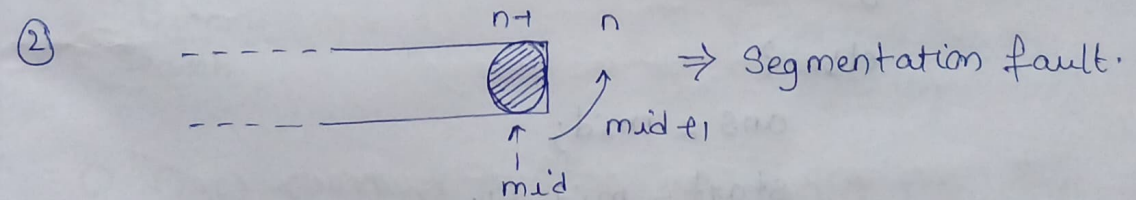 ②
n-1 n
⇒ Segmentation fault.
mid +1
mid